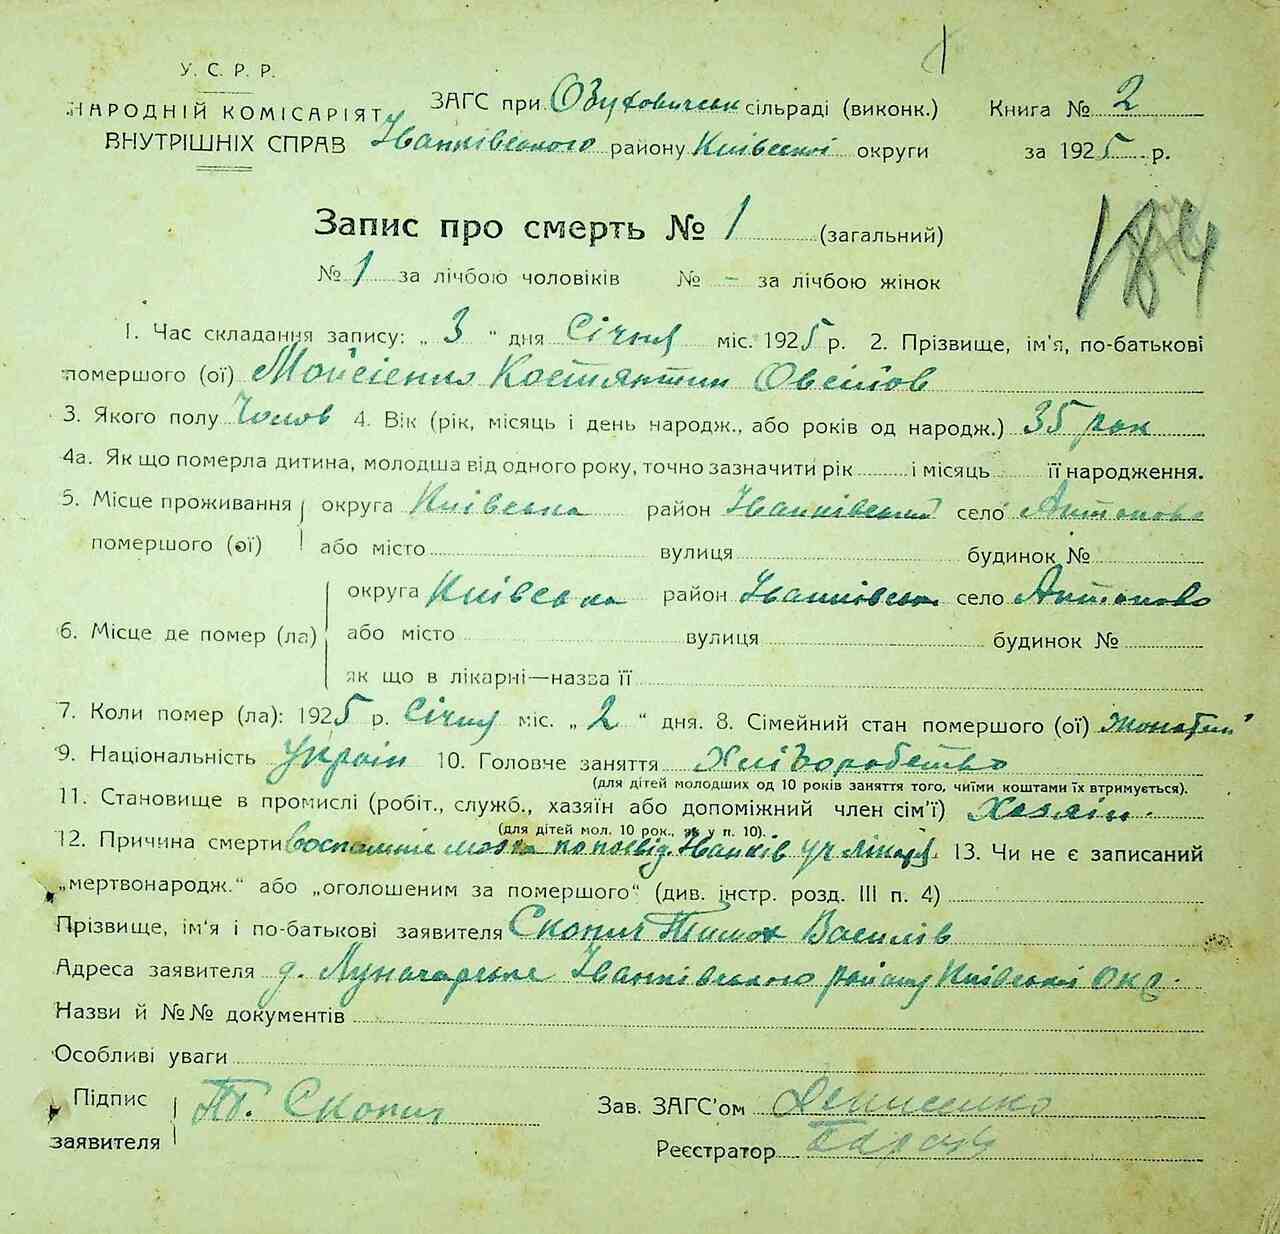 У. С. Р. Р.
НАРОДНІЙ КОМІСАРІЯТ
ВНУТРІШНІХ СПРАВ
ЗАГС при сільраді (виконк.)
Іванківського району Київської округи
Книга № 2
за 1925 р.
Запис про смерть № 1 (загальний)
№ 1 за лічбою чоловіків № - за лічбою жінок
1. Час складання запису: „ 3 " дня Січня міс. 1925 р. 2. Прізвище, ім'я, по-батькові
помершого (ої) Мойсієнко Костянтин
3. Якого полу Чолов 4. Вік (рік, місяць і день народж., або років од народж.) 35 рок
4а. Як що померла дитина, молодша від одного року, точно зазначити рік і місяць її народження.
5. Місце проживання округа Київська район Іванківський село Антоново
помершого (ої) або місто вулиця будинок №
округа Київська район Іванківськ село Антоново
6. Місце де помер (ла) або місто вулиця будинок №
як що в лікарні—назва її
7. Коли помер (ла): 1925 р. Січня міс. „ 2 " дня. 8. Сімейний стан помершого (ої) жонатий
9. Національність Україн 10. Головче заняття Хліборобство
(для дітей молодших од 10 років заняття того, чиїми коштами їх втримується).
11. Становище в промислі (робіт., служб., хазяїн або допоміжний член сім'ї) Хазяін.
(для дітей мол. 10 рок., як у п. 10).
12. Причина смерти мозка по посвід Іванків 13. Чи не є записаний
„мертвонародж." або „оголошеним за помершого" (див. інстр. розд. III п. 4)
Прізвище, ім'я і по-батькові заявителя Скопич Тимох Василів
Адреса заявителя д. Луначарське Іванківського району Київської окр.
Назви й №№ документів
Особливі уваги
Підпис
заявителя Скопич
Зав. ЗАГС'ом Денисенко
Реєстратор